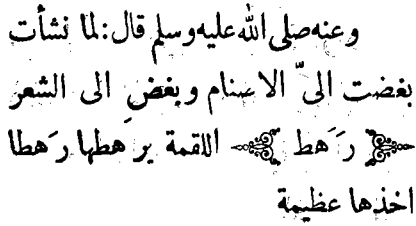 وعنه صلى الله عليه وسلم قال: لما نشأت
بغضت الىّ الاصنام وبغضِ الى الشعر
﴿ رَهط ﴾ اللقمة يرهطها رَهطا
اخذها عظيمة